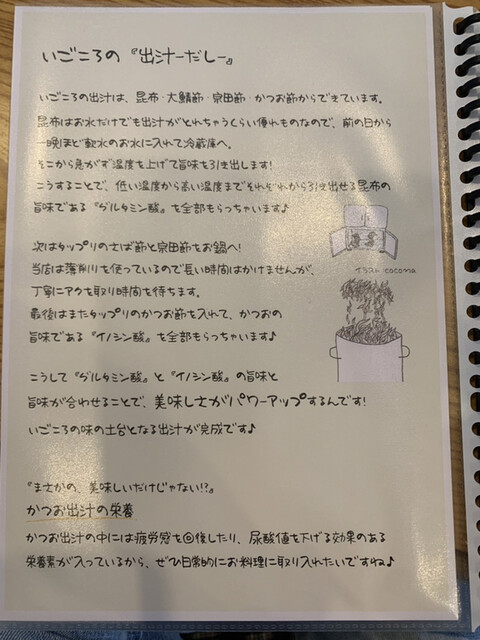 いごころの『出汁ーだしー』
いごころの出汁は、昆布・大鯖節・宗田節・かつお節からできています。
昆布はお水だけでも出汁がとれちゃうくらい優れものなので、前の日から
一晩ほど軟水のお水に入れて冷蔵庫へ。
そこから急がず温度を上げて旨味を引き出します!
こうすることで、低い温度から高い温度までそれぞれから引き出せる昆布の
旨味である『グルタミン酸』を全部もらっちゃいます♪
次はタップリのさば節と宗田節をお鍋へ!
当店は薄削りを使っているので長い時間はかけませんが、
丁寧にアクを取り時間を待ちます。
最後はまたタップリのかつお節を入れて、かつおの
旨味である『イノシン酸』を全部もらっちゃいます♪
イラスト:cocoma
こうして『グルタミン酸』と『イノシン酸』の旨味と
旨味が合わせることで、美味しさがパワーアップするんです!
いごころの味の土台となる出汁が完成です♪
『まさかの、美味しいだけじゃない!?』
かつお出汁の栄養
かつお出汁の中には疲労感を回復したり、尿酸値を下げる効果のある
栄養素が入っているから、ぜひ日常的にお料理に取り入れたいですね♪